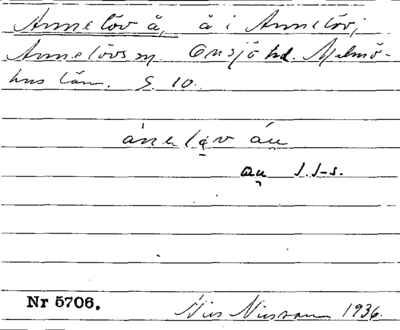 Annelöv å, å i Annelöv,
Annelövs sn. Onsjö hd. Malmö-
hus län. S. 10.
ánelǫv áu̯
au̯ J.J-s.
Nr 5706. Nils Nilsson 1936.